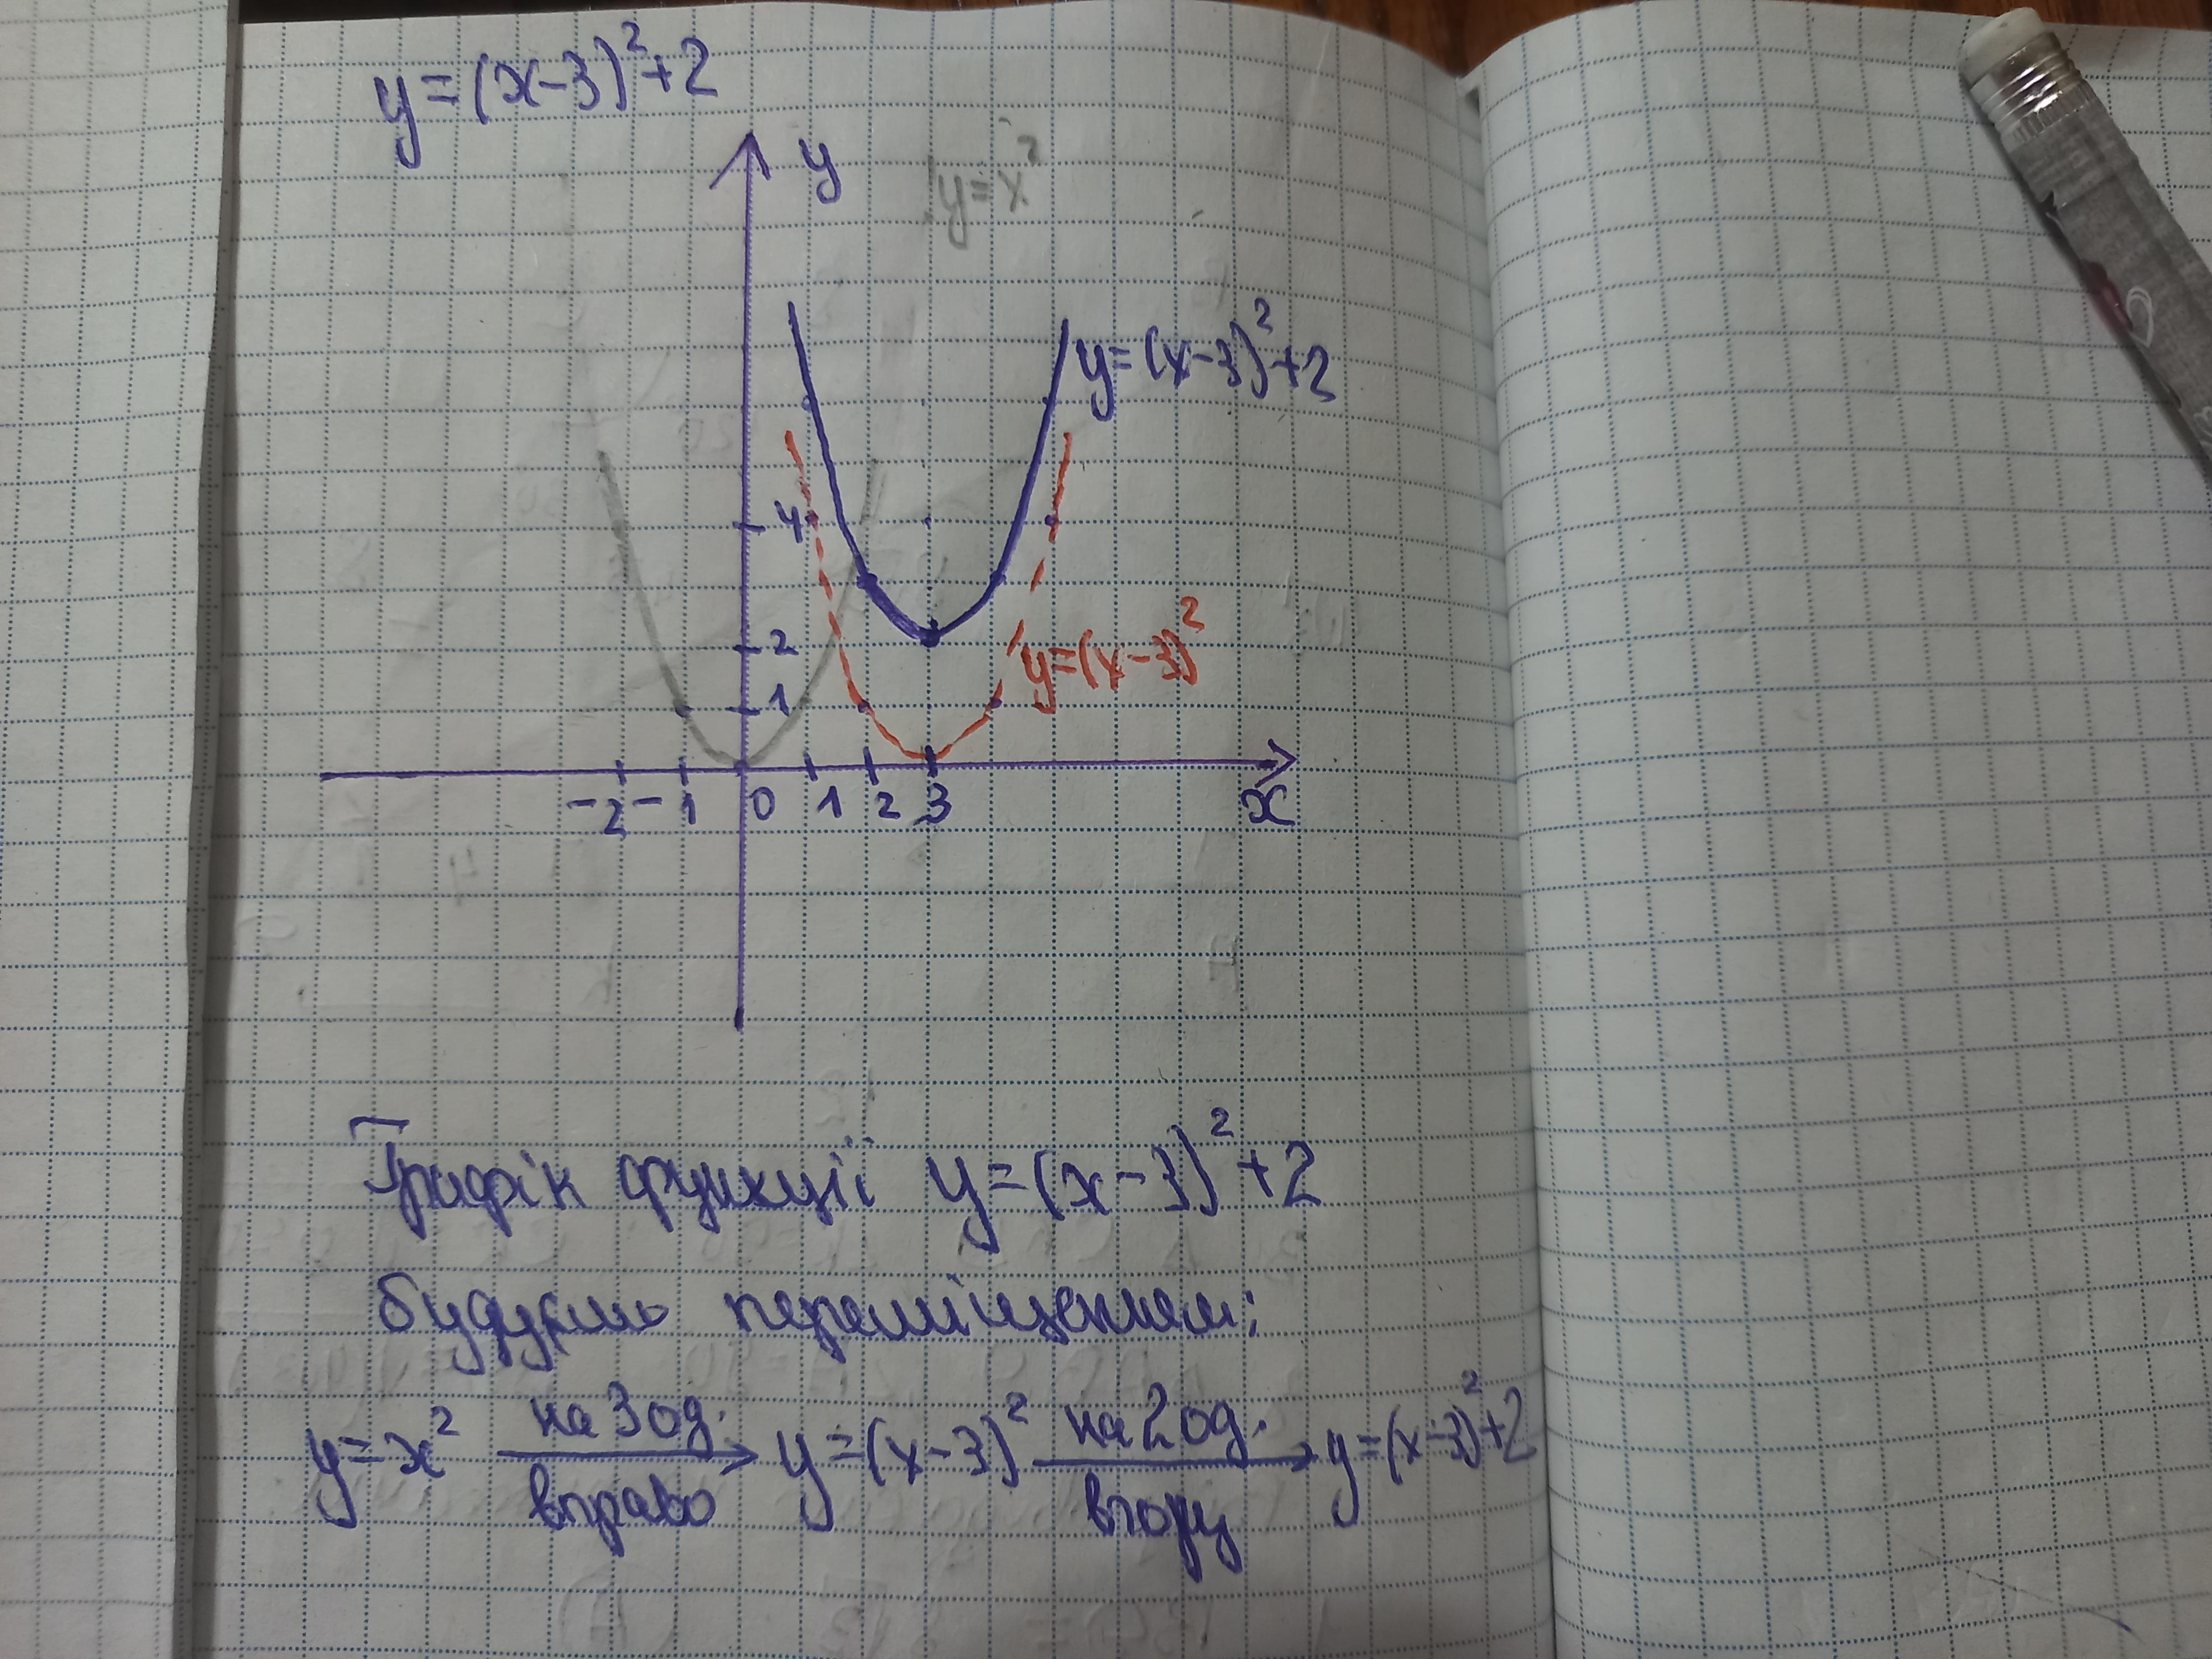 y=(x-3)²+2
y
y=x²
y=(x-3)²+2
4
2
y=(x-3)²
1
-2 -1 0 1 2 3 x
Графік функції y=(x-3)²+2
будуємо переміщенням:
на 3 од. на 2 од.
y=x² → y=(x-3)² → y=(x-3)²+2
вправо вгору